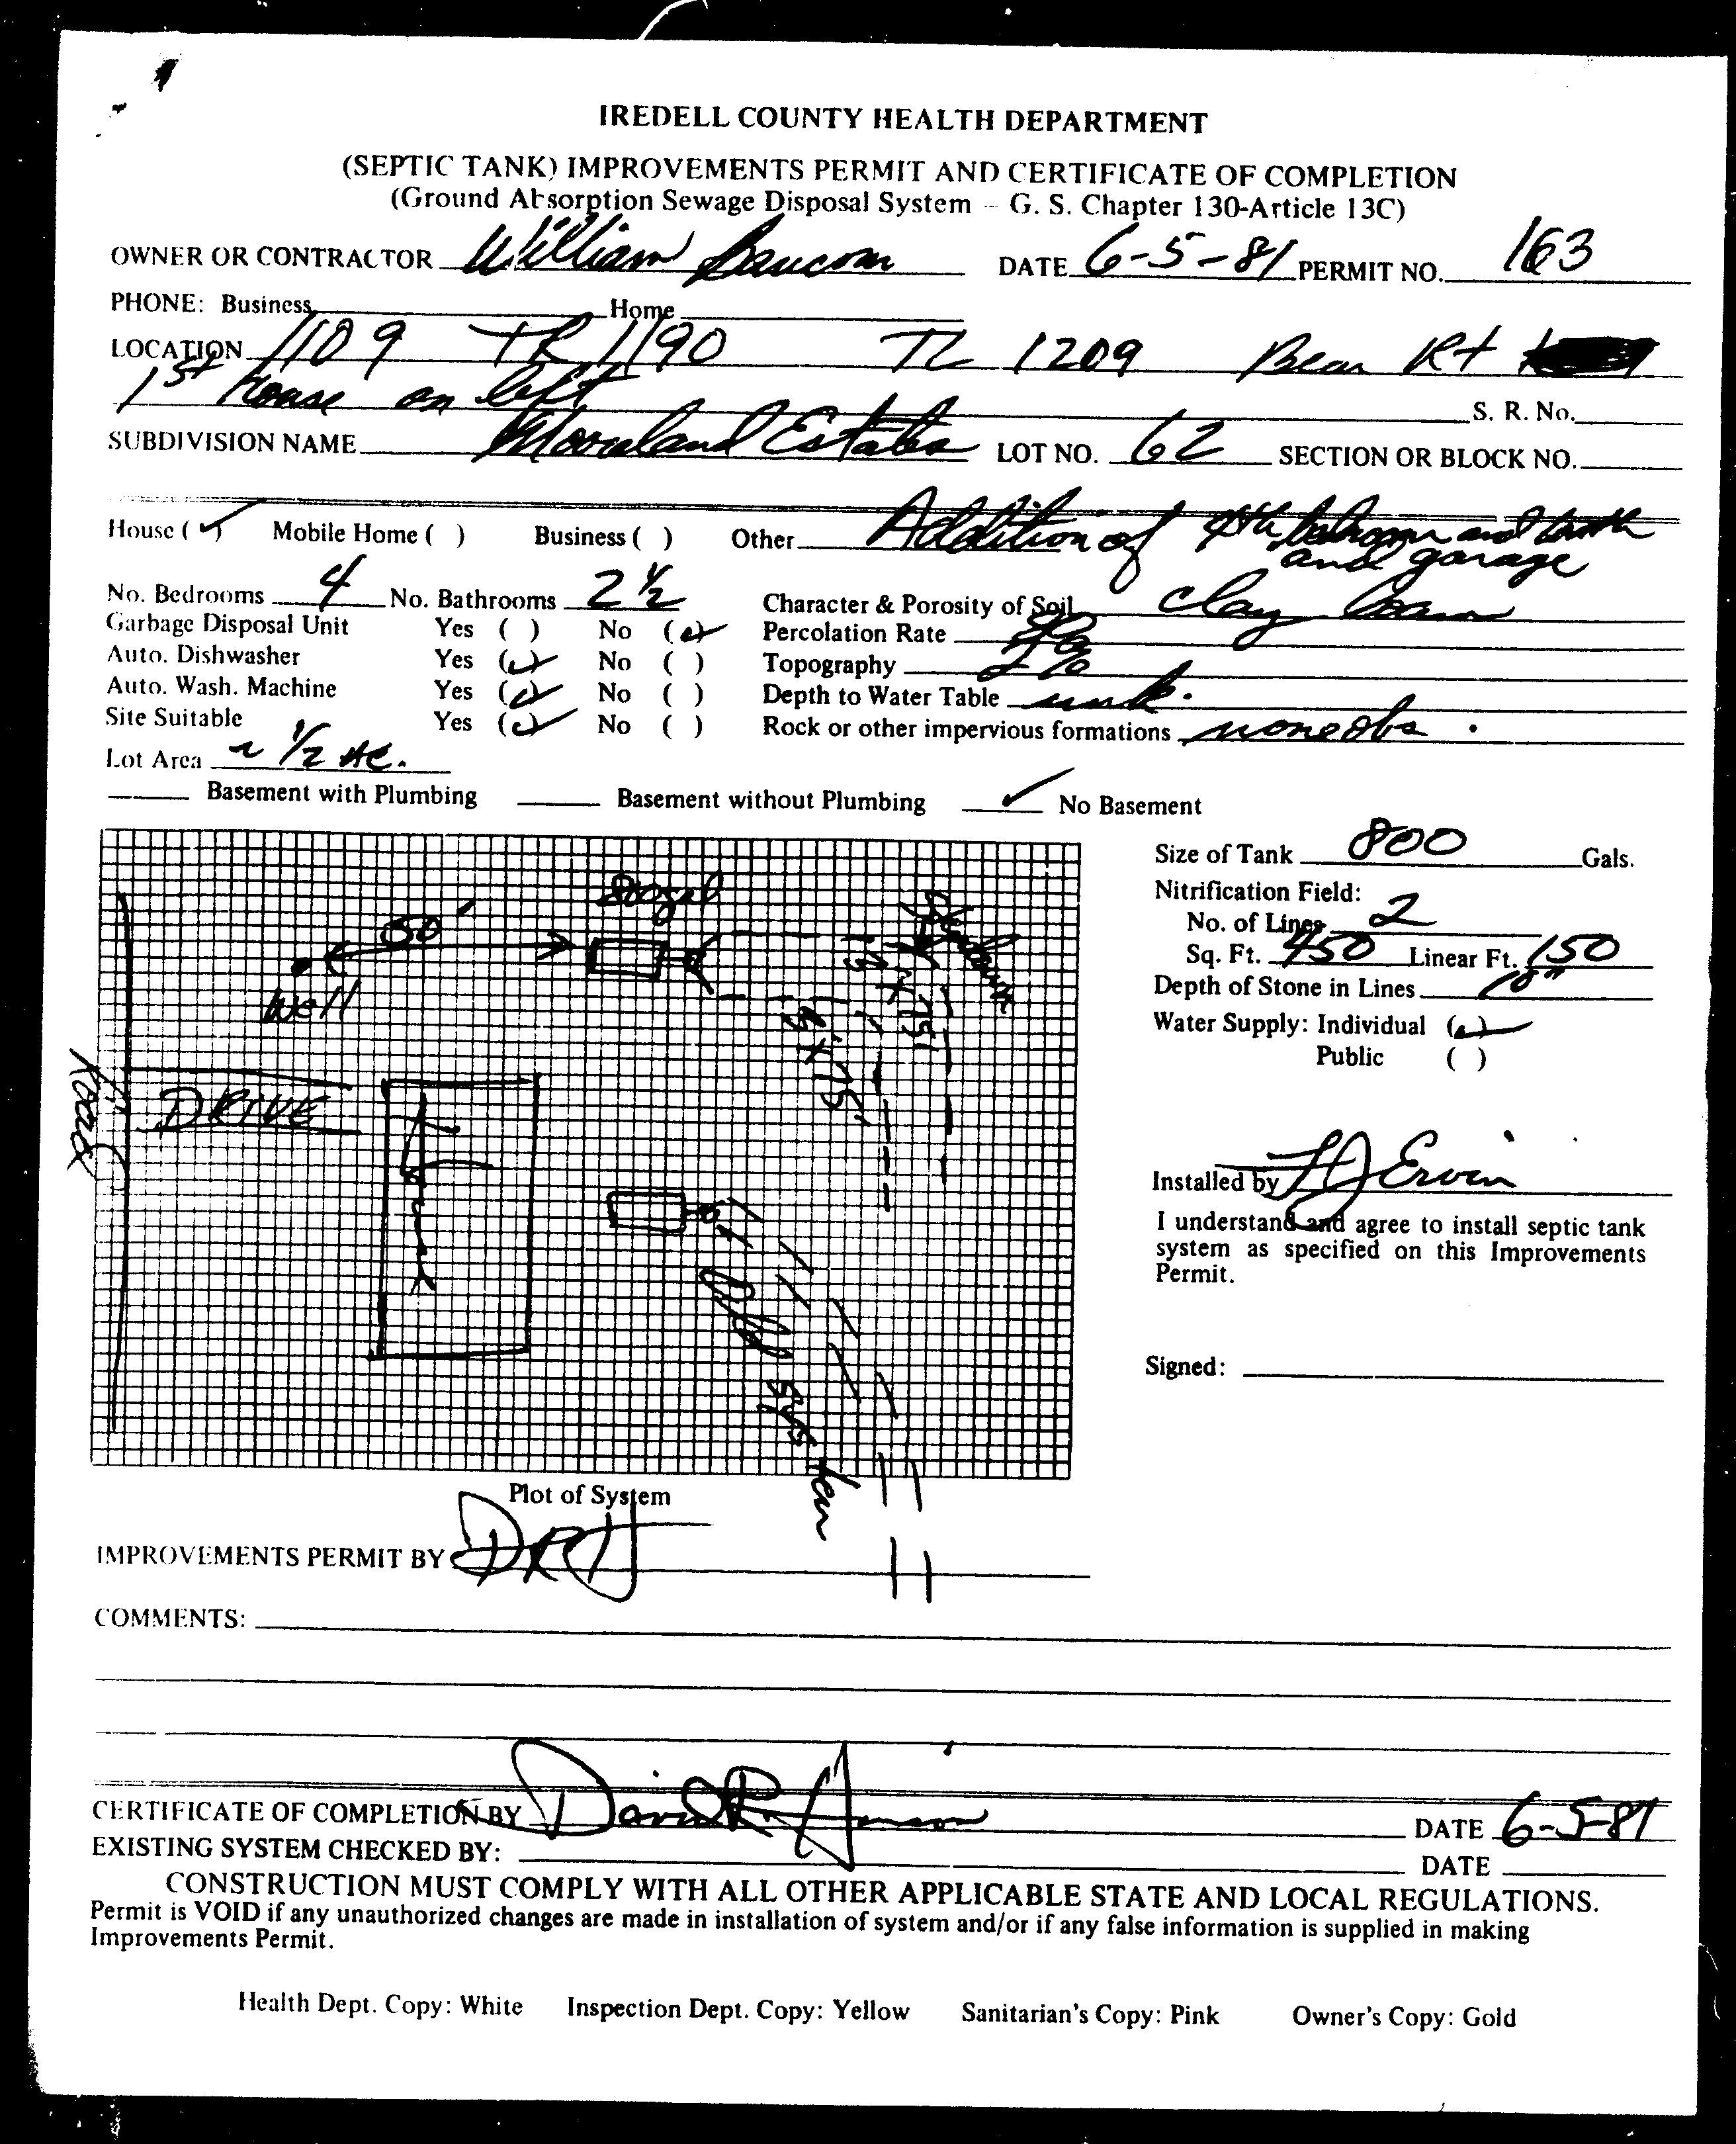 IREDELL COUNTY HEALTH DEPARTMENT
(SEPTIC TANK) IMPROVEMENTS PERMIT AND CERTIFICATE OF COMPLETION
(Ground Absorption Sewage Disposal System – G. S. Chapter 130-Article 13C)
OWNER OR CONTRACTOR William Baucom DATE 6-5-81 PERMIT NO. 163
PHONE: Business Home
LOCATION 1109 TR 1190 TL 1209 Bear Rt
1st House on left S. R. No.
SUBDIVISION NAME Mooreland Estates LOT NO. 62 SECTION OR BLOCK NO.
House (✓) Mobile Home ( ) Business ( ) Other Addition of 4th bedroom and bath
and garage
No. Bedrooms 4 No. Bathrooms 2 1/2 Character & Porosity of Soil clay loam
Garbage Disposal Unit Yes ( ) No (✓) Percolation Rate
Auto. Dishwasher Yes (✓) No ( ) Topography
Auto. Wash. Machine Yes (✓) No ( ) Depth to Water Table unk.
Site Suitable Yes (✓) No ( ) Rock or other impervious formations none obs.
Lot Area ~ 1/2 AC.
Basement with Plumbing Basement without Plumbing ✓ No Basement
Size of Tank 800 Gals.
Nitrification Field:
No. of Lines 2
Sq. Ft. 450 Linear Ft. 150
Depth of Stone in Lines 18"
Water Supply: Individual (✓)
Public ( )
50'
Well
3' x 75'
3' x 75'
Road
DRIVE
Old System
Installed by Ervin
I understand and agree to install septic tank
system as specified on this Improvements
Permit.
Signed:
Plot of System
IMPROVEMENTS PERMIT BY DRH
COMMENTS:
CERTIFICATE OF COMPLETION BY David R. DATE 6-5-81
EXISTING SYSTEM CHECKED BY: DATE
CONSTRUCTION MUST COMPLY WITH ALL OTHER APPLICABLE STATE AND LOCAL REGULATIONS.
Permit is VOID if any unauthorized changes are made in installation of system and/or if any false information is supplied in making
Improvements Permit.
Health Dept. Copy: White Inspection Dept. Copy: Yellow Sanitarian's Copy: Pink Owner's Copy: Gold